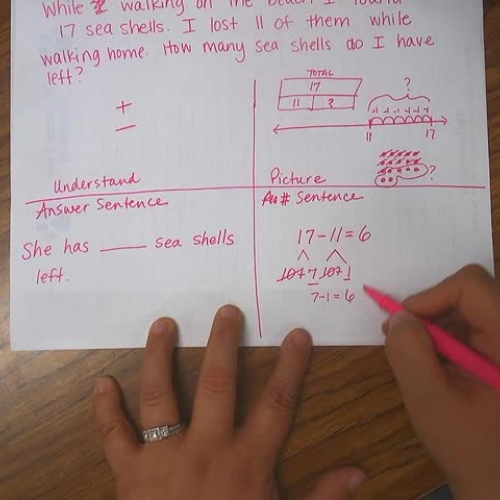 while walking on the beach I found
17 sea shells. I lost 11 of them while
walking home. How many sea shells do I have
left?
+
−
Understand
TOTAL
17
11 ?
?
-1 -1 -1 -1 -1 -1
11 17
?
Picture
Answer Sentence
She has ____ sea shells
left.
# Sentence
17-11=6
10+7 10+1
7-1=6